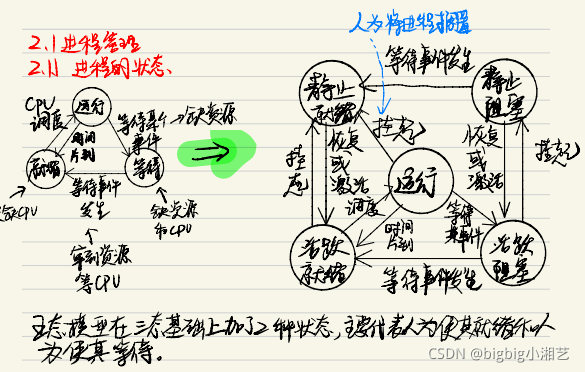 2.1 进程管理
2.1.1 进程的状态、
人为将进程搁置
等待事件发生
CPU
调度
运行
等待某个
事件
缺资源
时间
片到
就绪
等待
缺CPU
等待事件
发生
缺资源
和CPU
等到资源
等CPU
静止
就绪
静止
阻塞
挂起
恢复
或
激活
挂起
运行
恢复
或
激活
挂起
调度
时间
片到
等待
某事件
活跃
就绪
活跃
阻塞
等待事件发生
五态模型在三态基础上加了2种状态,主要代表人为使其就绪和人
为使其等待。
CSDN @bigbig小湘艺